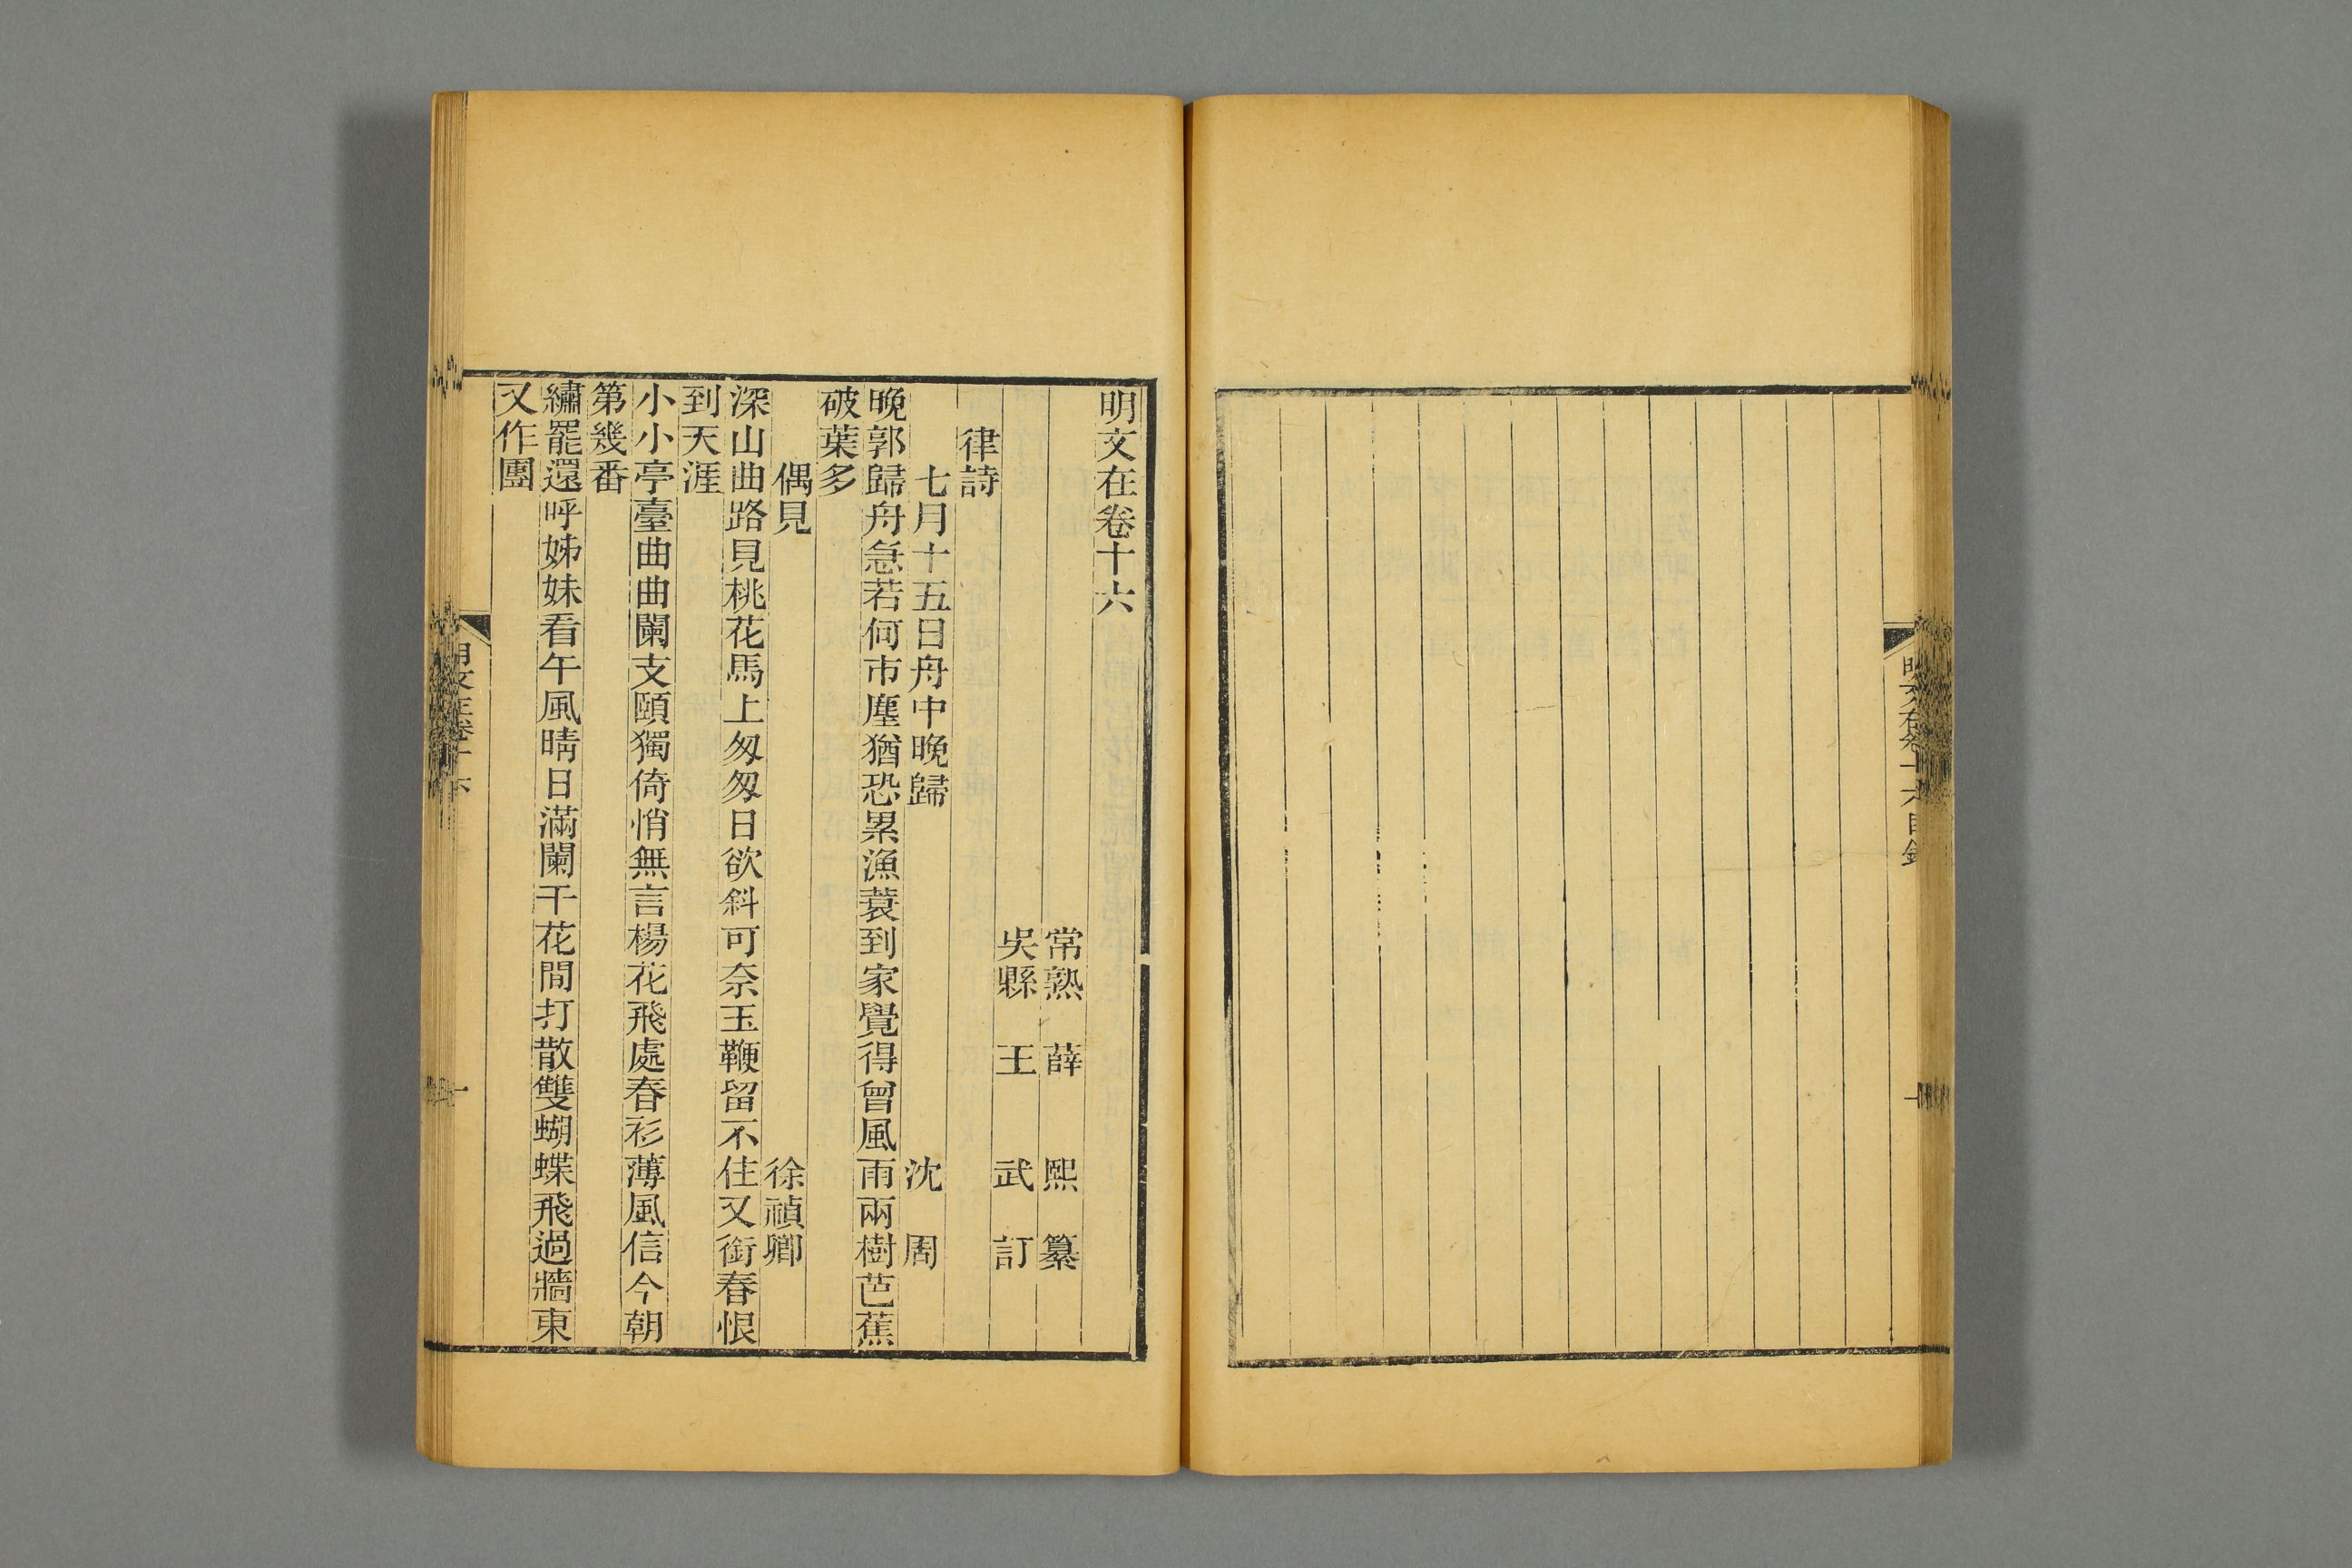 明文在卷十六目錄
一
明文在卷十六
常熟 薛 熙 纂
吳縣 王 武 訂
律詩
七月十五日舟中晚歸 沈 周
晚郭歸舟急若何市塵猶恐累漁蓑到家覺得曾風雨兩樹芭蕉
破葉多
偶見 徐禎卿
深山曲路見桃花馬上匆匆日欲斜可奈玉鞭留不住又銜春恨
到天涯
小小亭臺曲曲闌支頤獨倚悄無言楊花飛處春衫薄風信今朝
第幾番
繡罷還呼姊妹看午風晴日滿闌干花間打散雙蝴蝶飛過牆東
又作團
明文在卷十六
一